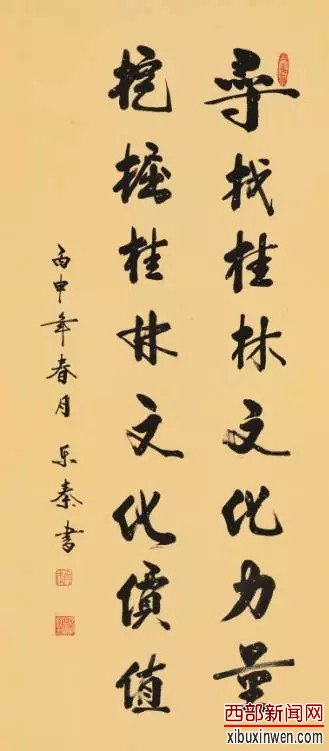 尋找桂林文化力量
挖掘桂林文化價值
丙申年春月 乐秦書
西部新闻网
xibuxinwen.com